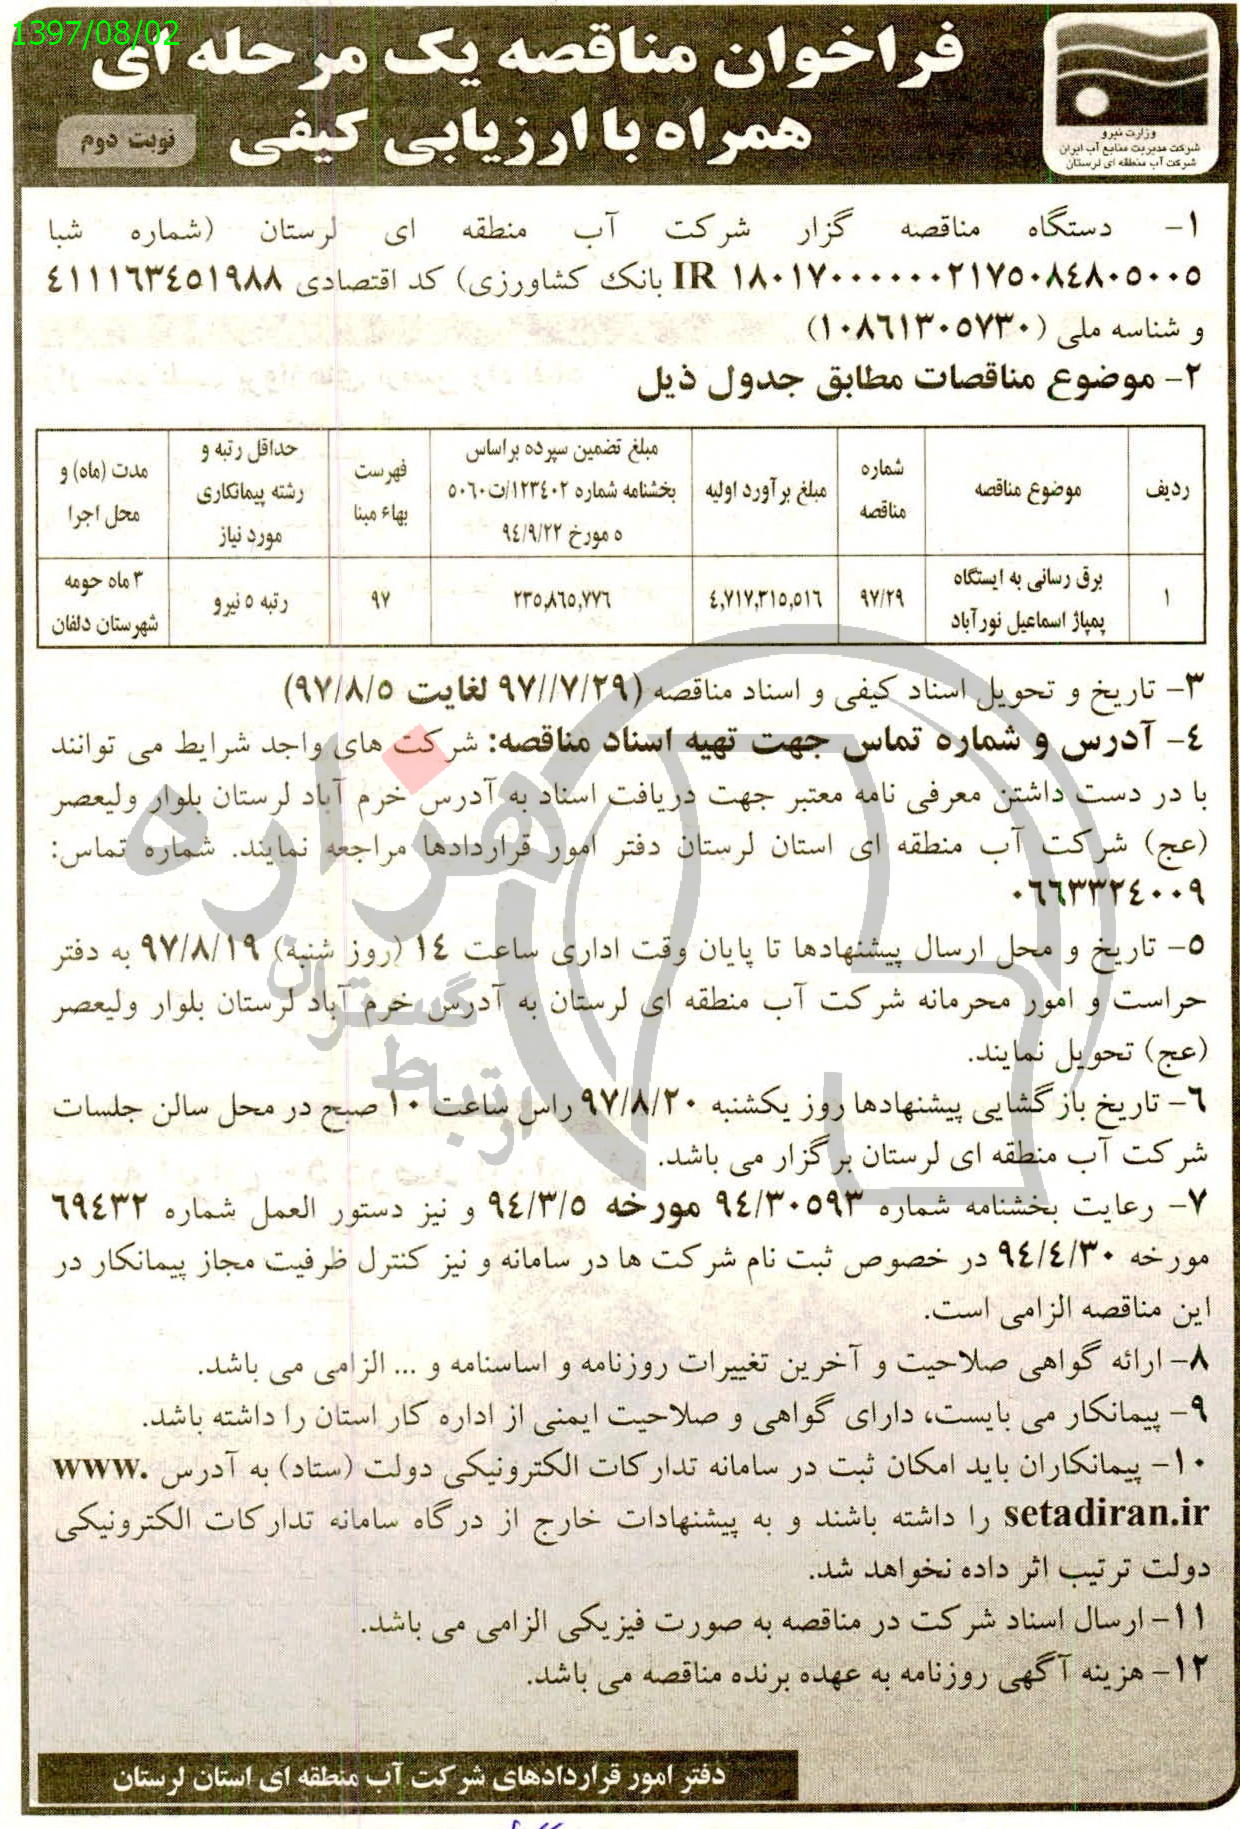 1397/08/02
فراخوان مناقصه یک مرحله ای
همراه با ارزیابی کیفی
نوبت دوم
وزارت نیرو
شرکت مدیریت منابع آب ایران
شرکت آب منطقه ای لرستان
۱- دستگاه مناقصه گزار شرکت آب منطقه ای لرستان (شماره شبا
IR ۱۸۰۱۷۰۰۰۰۰۰۰۲۱۷۵۰۸٤۸۰۵۰۰۵ بانک کشاورزی) کد اقتصادی ٤۱۱۱٦۳٤۵۱۹۸۸
و شناسه ملی (۱۰۸٦۱۳۰۵۷۳۰)
۲- موضوع مناقصات مطابق جدول ذیل
ردیف | موضوع مناقصه | شماره مناقصه | مبلغ برآورد اولیه | مبلغ تضمین سپرده براساس بخشنامه شماره ۱۲۳٤۰۲/ت۵۰٦۰ ه مورخ ۹٤/۹/۲۲ | فهرست بهاء مبنا | حداقل رتبه و رشته پیمانکاری مورد نیاز | مدت (ماه) و محل اجرا
۱ | برق رسانی به ایستگاه پمپاژ اسماعیل نورآباد | ۹۷/۲۹ | ٤,۷۱۷,۳۱۵,۵۱٦ | ۲۳۵,۸٦۵,۷۷٦ | ۹۷ | رتبه ۵ نیرو | ۳ ماه حومه شهرستان دلفان
۳- تاریخ و تحویل اسناد کیفی و اسناد مناقصه (۹۷//۷/۲۹ لغایت ۹۷/۸/۵)
٤- آدرس و شماره تماس جهت تهیه اسناد مناقصه: شرکت های واجد شرایط می توانند
با در دست داشتن معرفی نامه معتبر جهت دریافت اسناد به آدرس خرم آباد لرستان بلوار ولیعصر
(عج) شرکت آب منطقه ای استان لرستان دفتر امور قراردادها مراجعه نمایند. شماره تماس:
۰٦٦۳۳۲٤۰۰۹
۵- تاریخ و محل ارسال پیشنهادها تا پایان وقت اداری ساعت ۱٤ (روز شنبه) ۹۷/۸/۱۹ به دفتر
حراست و امور محرمانه شرکت آب منطقه ای لرستان به آدرس خرم آباد لرستان بلوار ولیعصر
(عج) تحویل نمایند.
٦- تاریخ بازگشایی پیشنهادها روز یکشنبه ۹۷/۸/۲۰ راس ساعت ۱۰ صبح در محل سالن جلسات
شرکت آب منطقه ای لرستان برگزار می باشد.
۷- رعایت بخشنامه شماره ۹٤/۳۰۵۹۳ مورخه ۹٤/۳/۵ و نیز دستور العمل شماره ٦۹٤۳۲
مورخه ۹٤/٤/۳۰ در خصوص ثبت نام شرکت ها در سامانه و نیز کنترل ظرفیت مجاز پیمانکار در
این مناقصه الزامی است.
۸- ارائه گواهی صلاحیت و آخرین تغییرات روزنامه و اساسنامه و ... الزامی می باشد.
۹- پیمانکار می بایست، دارای گواهی و صلاحیت ایمنی از اداره کار استان را داشته باشد.
۱۰- پیمانکاران باید امکان ثبت در سامانه تدارکات الکترونیکی دولت (ستاد) به آدرس www.
setadiran.ir را داشته باشند و به پیشنهادات خارج از درگاه سامانه تدارکات الکترونیکی
دولت ترتیب اثر داده نخواهد شد.
۱۱- ارسال اسناد شرکت در مناقصه به صورت فیزیکی الزامی می باشد.
۱۲- هزینه آگهی روزنامه به عهده برنده مناقصه می باشد.
دفتر امور قراردادهای شرکت آب منطقه ای استان لرستان
هزاره
گستران
ارتباط